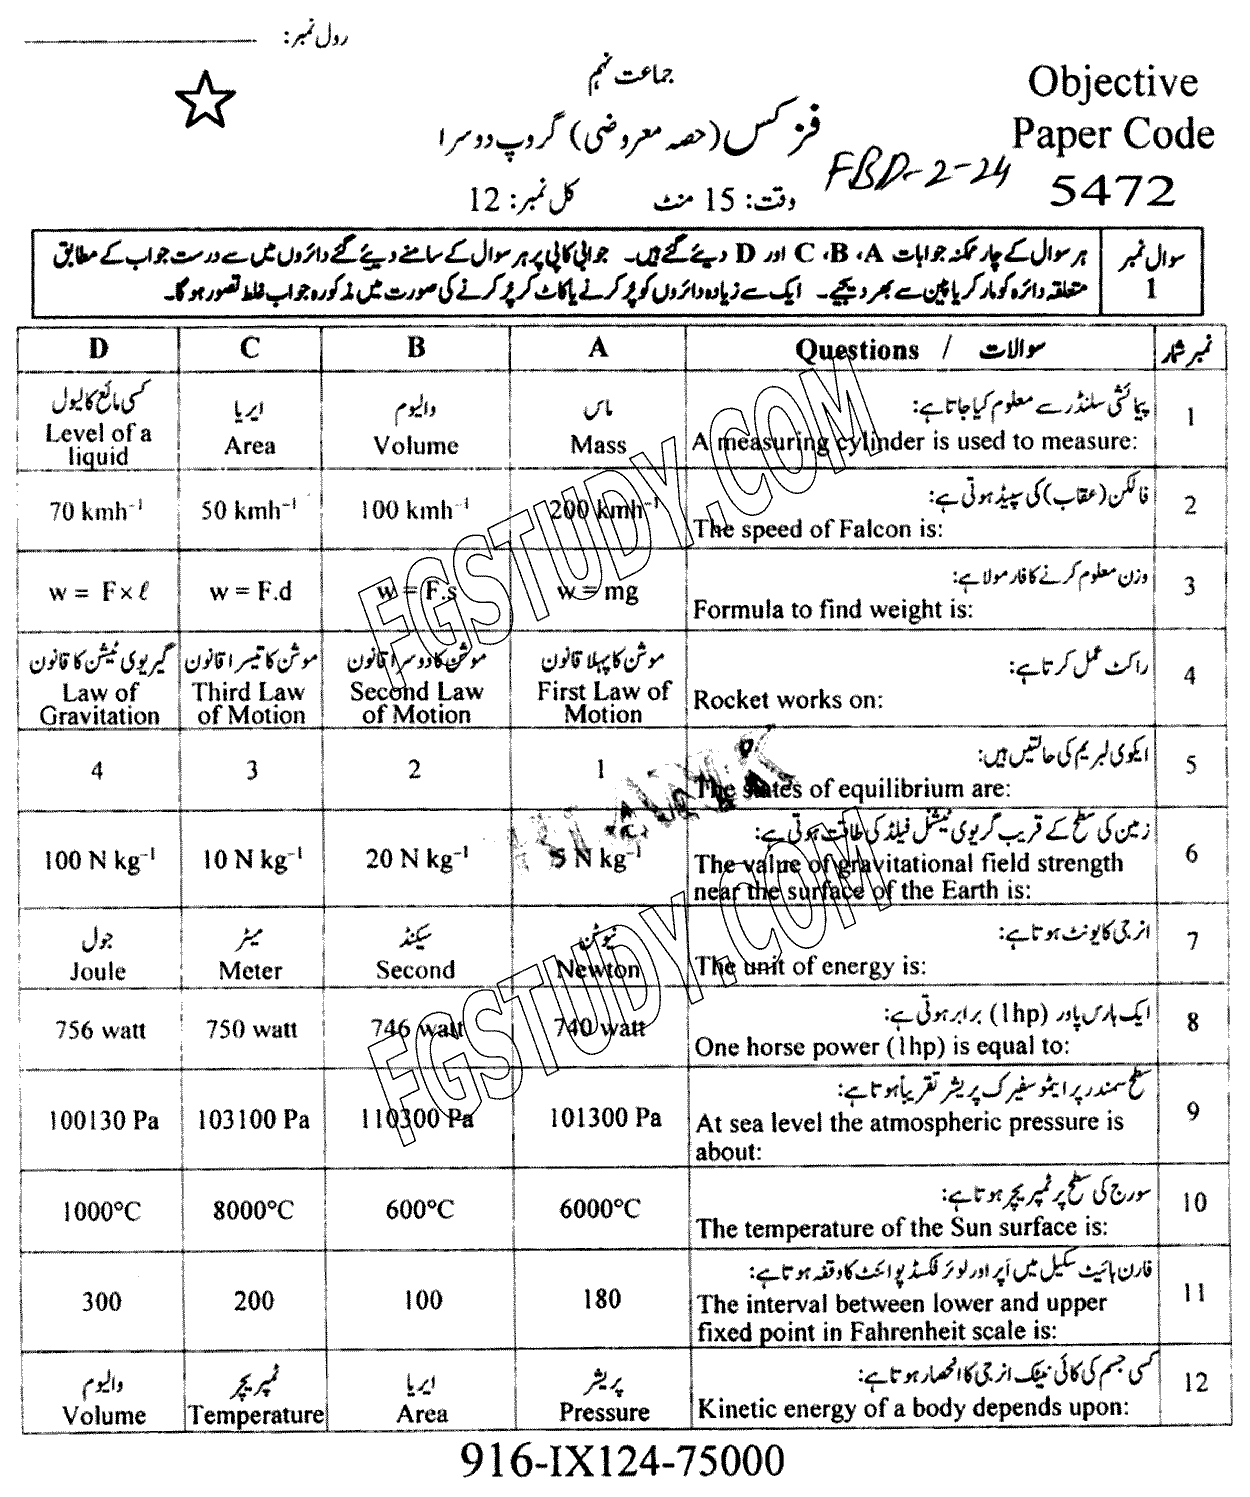 رول نمبر: ____________
جماعت نہم
Objective
Paper Code
5472
فزکس (حصہ معروضی) گروپ دوسرا
FBD-2-24
وقت: 15 منٹ کل نمبر: 12
سوال نمبر 1
ہر سوال کے چار ممکنہ جوابات A، B، C اور D دیئے گئے ہیں۔ جوابی کاپی پر ہر سوال کے سامنے دیئے گئے دائروں میں سے درست جواب کے مطابق
متعلقہ دائرہ کو مارکر یا پین سے بھر دیجیے۔ ایک سے زیادہ دائروں کو پُر کرنے یا کاٹ کر پُر کرنے کی صورت میں مذکورہ جواب غلط تصور ہو گا۔
D C B A Questions / سوالات نمبر شمار
1 پیمائشی سلنڈر سے معلوم کیا جاتا ہے:
A measuring cylinder is used to measure:
ماس
Mass
والیوم
Volume
ایریا
Area
کسی مائع کا لیول
Level of a
liquid
2 فالکن (عقاب) کی سپیڈ ہوتی ہے:
The speed of Falcon is:
200 kmh⁻¹
100 kmh⁻¹
50 kmh⁻¹
70 kmh⁻¹
3 وزن معلوم کرنے کا فارمولا ہے:
Formula to find weight is:
w = mg
w = F.s
w = F.d
w = F×ℓ
4 راکٹ عمل کرتا ہے:
Rocket works on:
موشن کا پہلا قانون
First Law of
Motion
موشن کا دوسرا قانون
Second Law
of Motion
موشن کا تیسرا قانون
Third Law
of Motion
گریوی ٹیشن کا قانون
Law of
Gravitation
5 ایکوی لبریم کی حالتیں ہیں:
The states of equilibrium are:
1
2
3
4
6 زمین کی سطح کے قریب گریوی ٹیشنل فیلڈ کی طاقت ہوتی ہے:
The value of gravitational field strength
near the surface of the Earth is:
5 N kg⁻¹
20 N kg⁻¹
10 N kg⁻¹
100 N kg⁻¹
7 انرجی کا یونٹ ہوتا ہے:
The unit of energy is:
نیوٹن
Newton
سیکنڈ
Second
میٹر
Meter
جول
Joule
8 ایک ہارس پاور (1hp) برابر ہوتی ہے:
One horse power (1hp) is equal to:
740 watt
746 watt
750 watt
756 watt
9 سطح سمندر پر ایٹموسفیرک پریشر تقریباً ہوتا ہے:
At sea level the atmospheric pressure is
about:
101300 Pa
110300 Pa
103100 Pa
100130 Pa
10 سورج کی سطح پر ٹمپریچر ہوتا ہے:
The temperature of the Sun surface is:
6000°C
600°C
8000°C
1000°C
11 فارن ہائیٹ سکیل میں اَپر اور لوئر فکسڈ پوائنٹ کا وقفہ ہوتا ہے:
The interval between lower and upper
fixed point in Fahrenheit scale is:
180
100
200
300
12 کسی جسم کی کائی نیٹک انرجی کا انحصار ہوتا ہے:
Kinetic energy of a body depends upon:
پریشر
Pressure
ایریا
Area
ٹمپریچر
Temperature
والیوم
Volume
916-IX124-75000
FGSTUDY.COM
FGSTUDY.COM